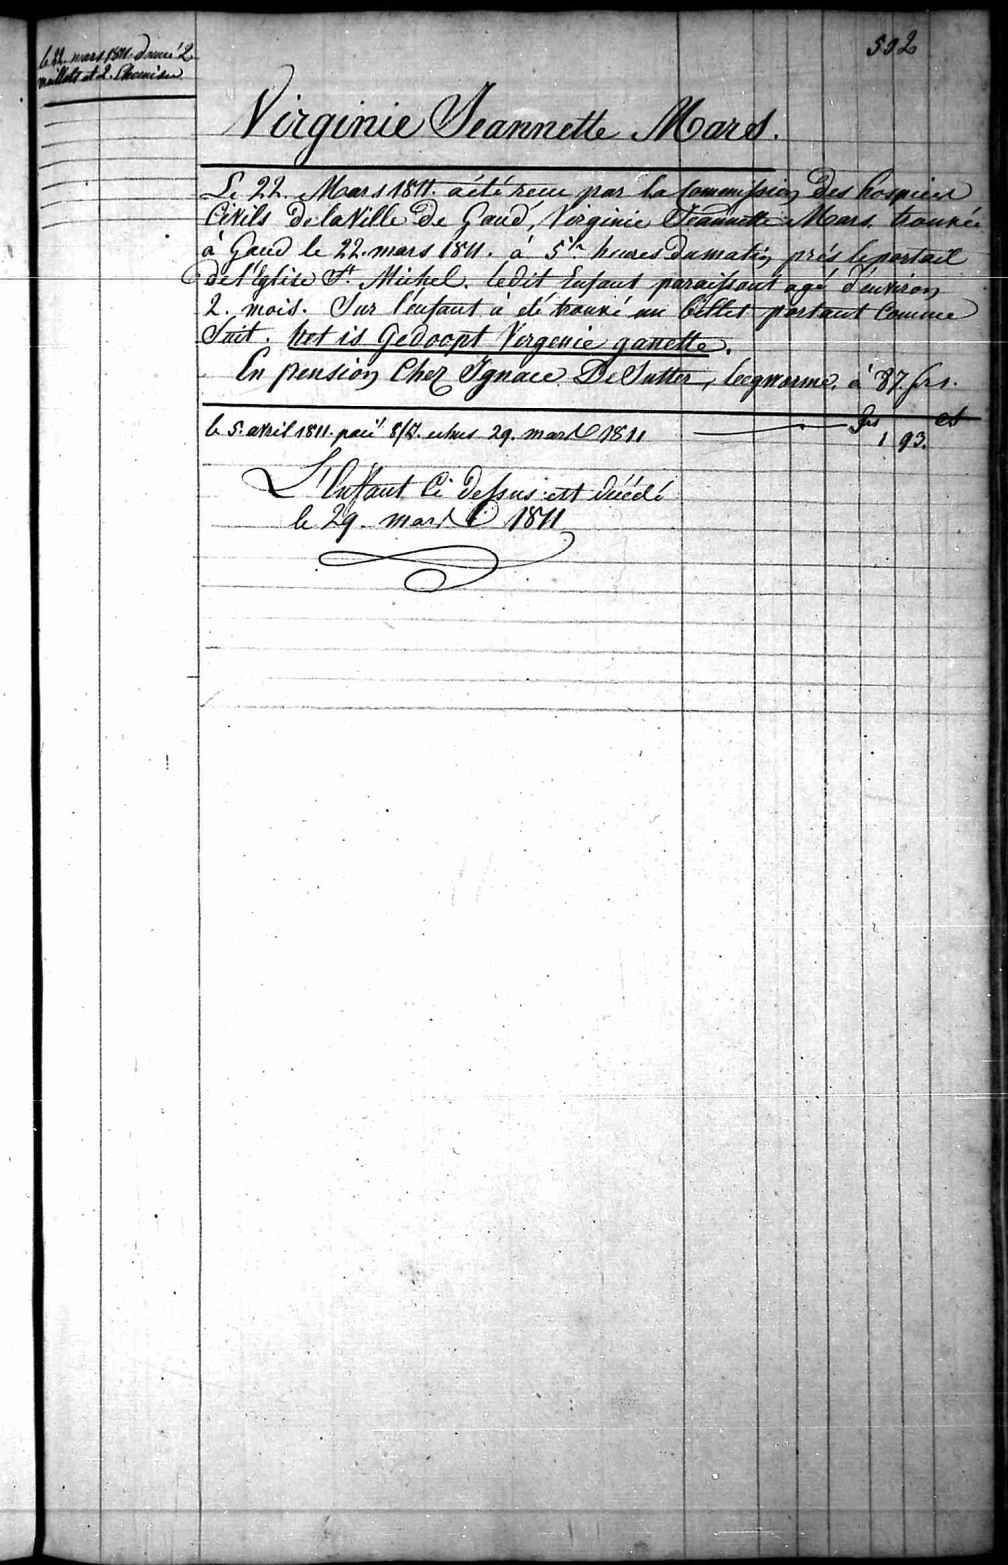 502
le 22. mars 1811. donné 2
maillots et 2. Chemises
Virginie Jeannette Mars.
Le 22. Mars 1811. a été recu par la Commission des hospices
Civils de la Ville de Gand, Virginie Jeannette Mars. trouvée
à Gand le 22. mars 1811. à 5 1/2 heures du matin près le portail
de l'Eglise St. Michel. ledit Enfant paraissant agé d'environ
2. mois. Sur l'enfant à été trouvé un billet portant Comme
Suit. het is Gedoopt Vergenie ganette.
En pension Chez Ignace De Sutter, à 87. frs.
frs cs
le 5. avril 1811. paié 8/d. echus 29. mars 1811 1 93.
L'Enfant Ci dessus est décédé
le 29. mars 1811